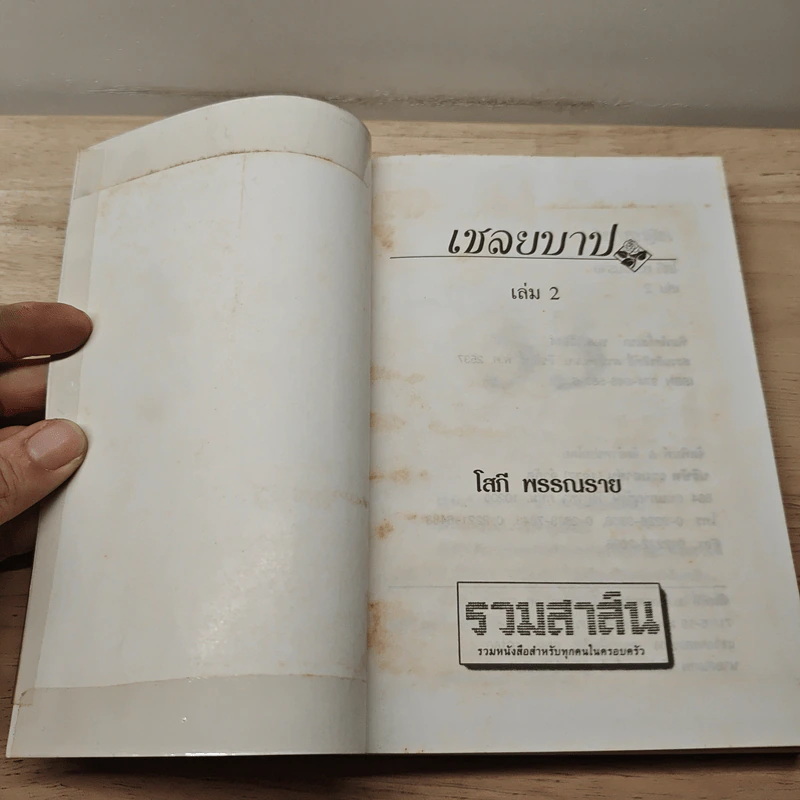 เชลยบาป
เล่ม 2
โสภี พรรณราย
รวมสาส์น
รวมหนังสือสำหรับทุกคนในครอบครัว